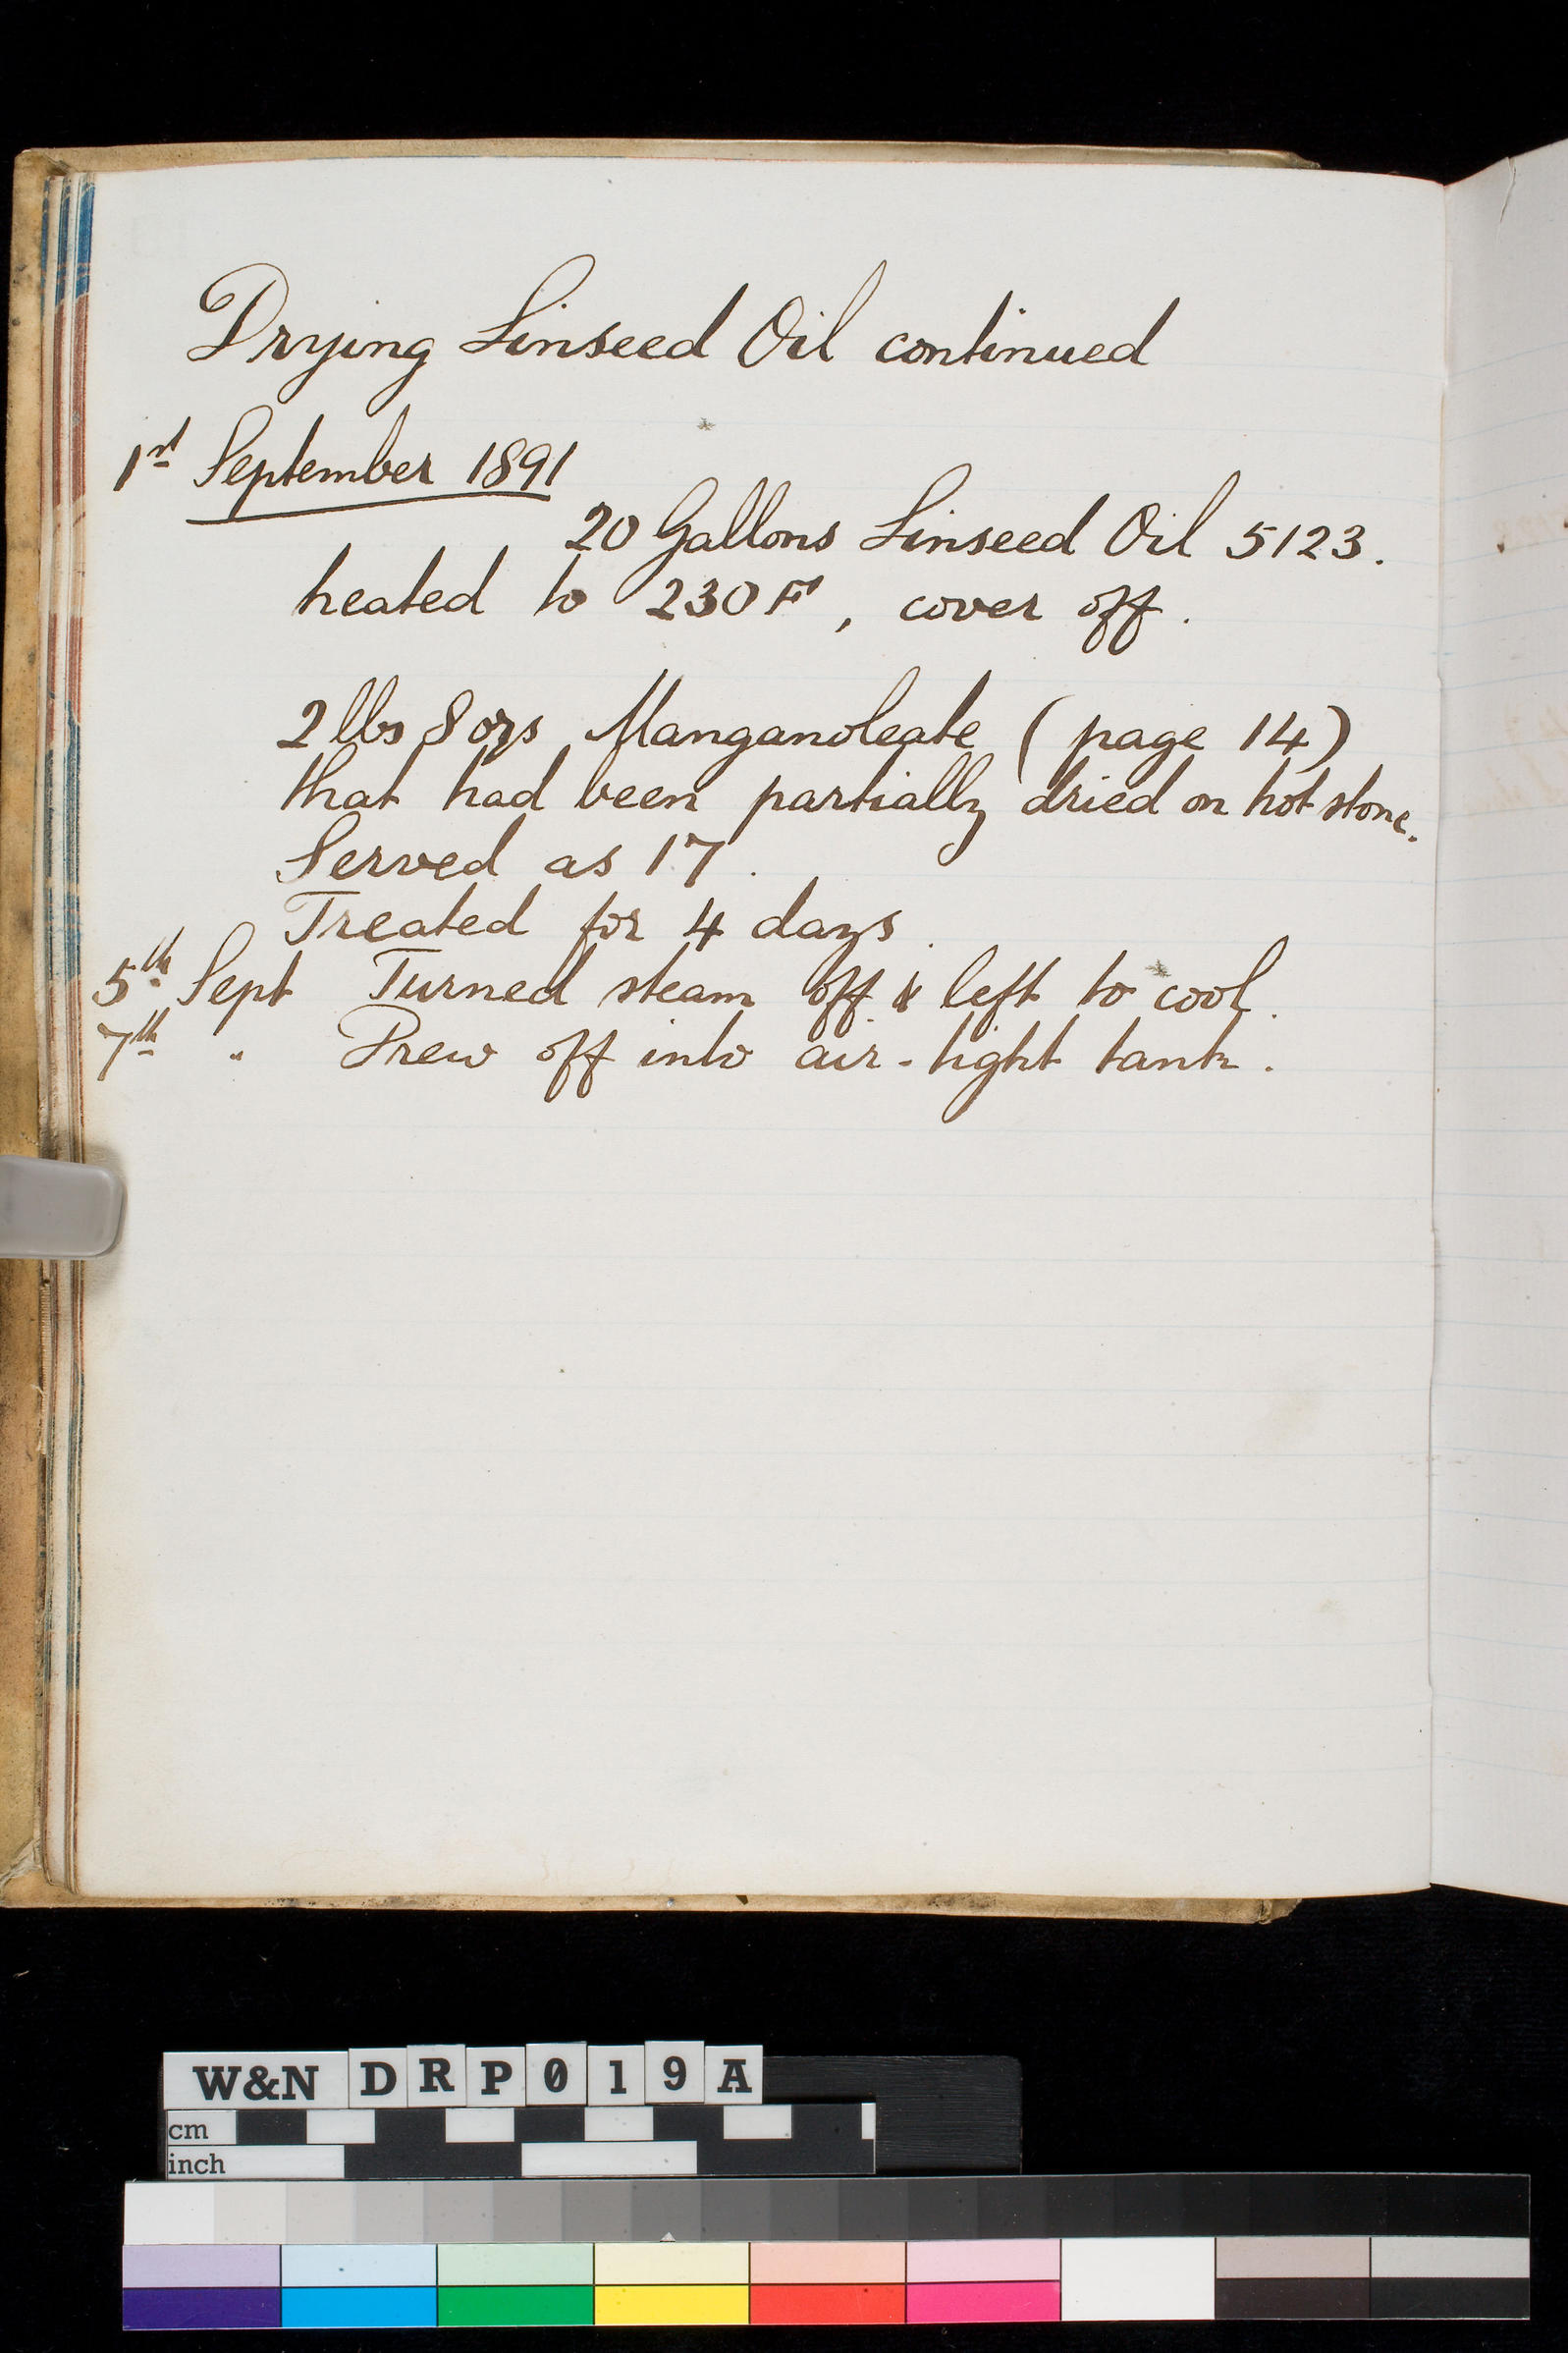 Drying Linseed Oil continued
1st September 1891
20 Gallons Linseed Oil 5123.
heated to 230 F°, cover off.
2 lbs 8 ozs Manganoleate (page 14)
that had been partially dried on hot stone.
Served as 17.
Treated for 4 days.
5th Sept Turned steam off & left to cool.
7th " Drew off into air-tight tank.
W&N DRP019A
cm
inch